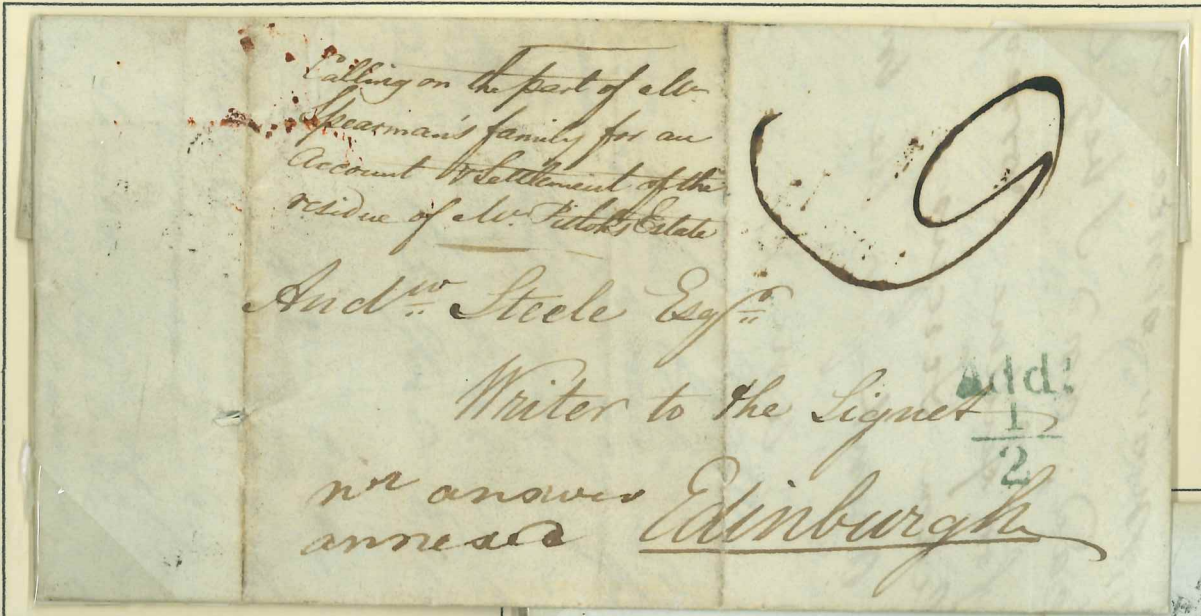 Calling on the part of Mr
Spearman's family for an
Account & Settlement of the
residue of Mr Estate
Andw Steele Esqr
Writer to the Signet
Addl
1
2
answer
annexed Edinburgh